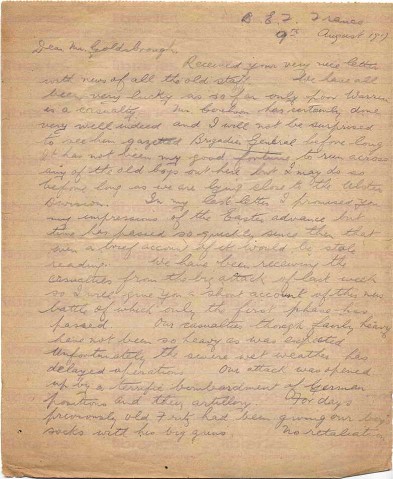 B. E. F. France
9th August 1917
Dear Mr Goldsbrough,
Received your very nice letter
with news of all the old staff. We have all
been very lucky as so far only poor Warren
is a casualty. Mr has certainly done
very well indeed and I will not be surprised
to see him gazetted Brigadier General before long
It has not been my good fortune to run across
any of the old boys out here but I may do so
before long as we are lying close to the Ulster
Division. In my last letter I promised you
my impressions of the Easter advance but
time has passed so quickly since then that
even a brief account of it would be stale
reading. We have been receiving the
casualties from the big attack of last week
so I will give you a short account of this new
battle of which only the first phase has
passed. Our casualties though fairly heavy
have not been so heavy as was expected
Unfortunately the severe wet weather has
delayed operations. Our attack was opened
up by a terrific bombardment of German
positions and their artillery. For days
previously old Fritz had been giving our boys
socks with his big guns. No retaliation